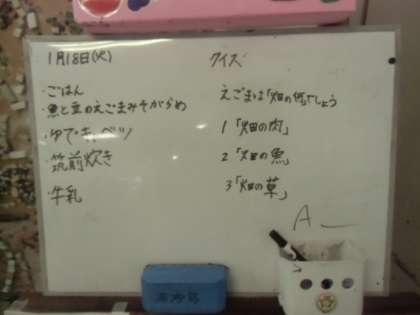 1月18日(火)
・ごはん
・魚と豆のえごまみそがらめ
・ゆでキャベツ
・筑前炊き
・牛乳
クイズ
えごまは「畑の何」でしょう
1「畑の肉」
2「畑の魚」
3「畑の草」
A_